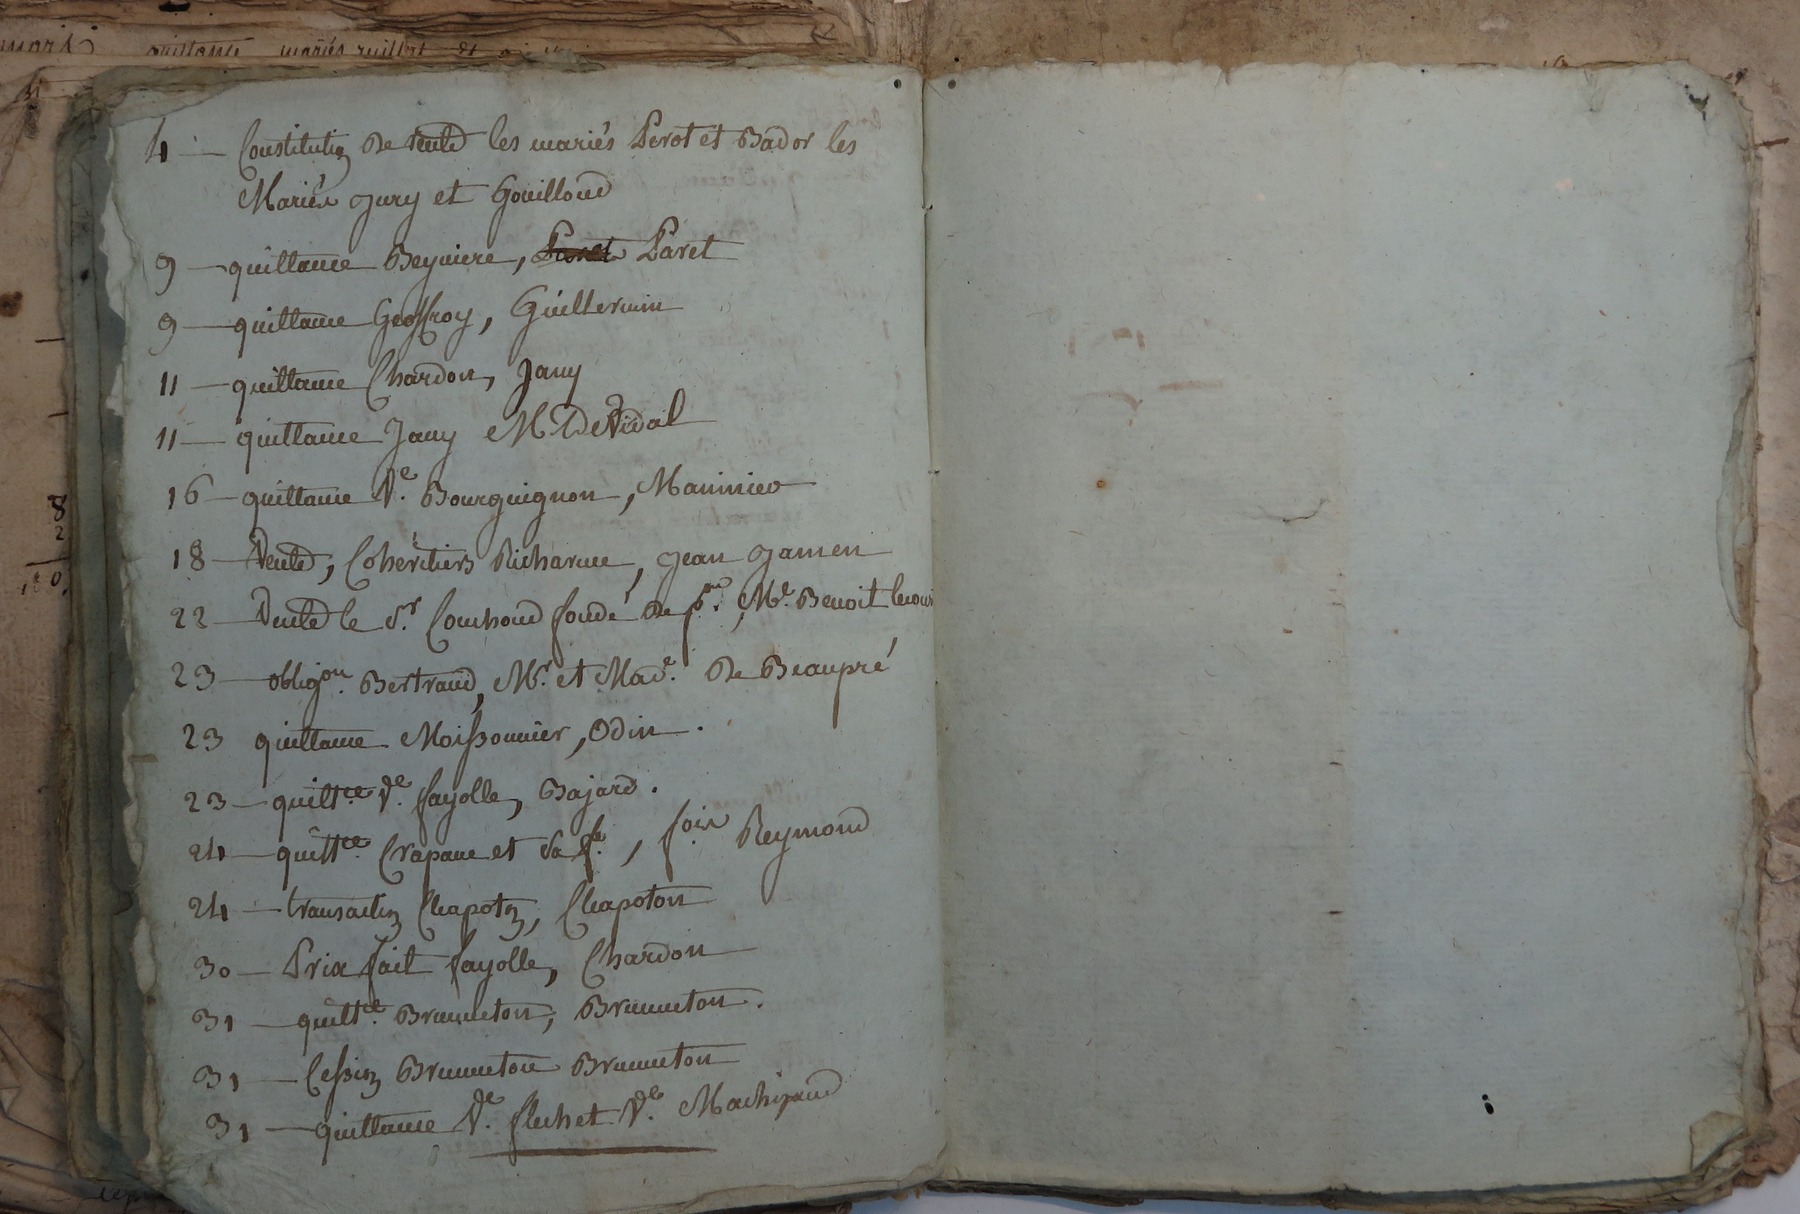 4 — Constitution De rente les mariés Perot et Bador les
Mariés Jury et Gouilloud
9 — quittance Beyviere, Paret
9 — quittance Geoffroy, Guillermin
11 — quittance Chardon, Jany
11 — quittance Jany Mr De Vidal
16 — quittance Ve. Bourguignon, Maninier
18 — Vente, Cohéritiers Richarme, Jean Jamen
22 — Vente le Sr. Couchoud fondé de pon., Mr. Benoit
23 — obligon. Bertrand, Mr. et Made. De Beaupré
23 quittance Moissonnier, Odin.
23 — quittce. Ve. fayolle, Bajard.
24 — quittce. Crapane et sa fe., fois Reymond
24 — transaction Chapoton, Chapoton
30 — Prix fait fayolle, Chardon
31 — quittce. Brunneton, Brunneton.
31 — Cession Brunneton Brunneton
31 — quittance Ve. flechet Ve. Machizaud
8
2
quittance mariés